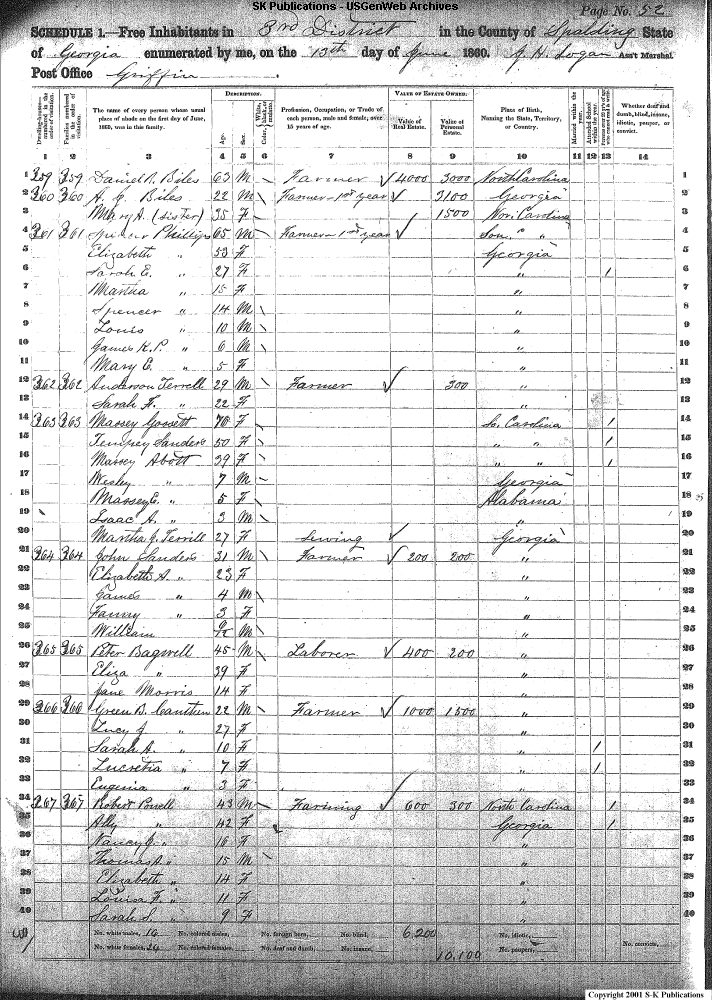 SK Publications - USGenWeb Archives
Page No. 52
SCHEDULE 1.—Free Inhabitants in 3rd District in the County of Spalding State
of Georgia enumerated by me, on the 13th day of June 1860. J. H. Logan Ass't Marshal
Post Office Griffin
Dwelling-houses—numbered in the order of visitation.
Families numbered in the order of visitation.
The name of every person whose usual place of abode on the first day of June, 1860, was in this family.
DESCRIPTION.
Age.
Sex.
Profession, Occupation, or Trade of each person, male and female, over 15 years of age.
VALUE OF ESTATE OWNED.
Value of Real Estate.
Value of Personal Estate.
Place of Birth, Naming the State, Territory, or Country.
Married within the year.
Attended School within the year.
Whether deaf and dumb, blind, insane, idiotic, pauper, or convict.
1 2 3 4 5 6 7 8 9 10 11 12 13 14
1 259 259 David R. Biles 63 M Farmer 4000 3000 North Carolina 1
2 260 260 A. G. Biles 22 M Farmer - 1st year 3100 Georgia 2
3 Mary A. (sister) 35 F 1500 Nor. Carolina 3
4 261 261 Spencer Phillips 65 M Farmer - 1st year Sou. " " 4
5 Elizabeth " 53 F Georgia 5
6 Sarah E. " 27 F " / 6
7 Martha " 15 F " 7
8 Spencer " 14 M " 8
9 Louis " 10 M " 9
10 James K. P. " 6 M " 10
11 Mary E. " 5 F " 11
12 262 262 Anderson Terrell 29 M Farmer 300 " 12
13 Sarah F. " 22 F " 13
14 263 263 Massey Gossett 70 F So. Carolina / 14
15 Tempey Sanders 50 F " " / 15
16 Massey Abott 39 F " " / 16
17 Wesley " 7 M Georgia 17
18 Massey E. " 5 F Alabama 18
19 Isaac A. " 3 M " 19
20 Martha J. Terrill 27 F Sewing Georgia 20
21 264 264 John Sanders 31 M Farmer 200 200 " 21
22 Elizabeth A. " 23 F " 22
23 James " 4 M " 23
24 Fanny " 3 F " 24
25 William 9/12 M " 25
26 265 265 Peter Bagwell 45 M Laborer 400 200 " 26
27 Eliza " 39 F " 27
28 Jane Morris 14 F " 28
29 266 266 Green B. Cauthen 22 M Farmer 1000 1500 " 29
30 Lucy J " 27 F " 30
31 Sarah A. " 10 F " / 31
32 Lucretia " 7 F " / 32
33 Eugenia " 3 F " 33
34 267 267 Robert Powell 43 M Farming 600 300 North Carolina / 34
35 Ally " 42 F Georgia / 35
36 Nancy J. " 16 F " 36
37 Thomas A. " 15 M " 37
38 Elizabeth " 14 F " 38
39 Louisa F. " 11 F " 39
40 Sarah S. " 9 F " 40
No. white males, 16 No. colored males, No. foreign born, No. blind, 6,200 No. idiotic,
No. white females, 24 No. colored females, No. deaf and dumb, No. insane, 10,100 No. paupers, No. convicts,
Copyright 2001 S-K Publications